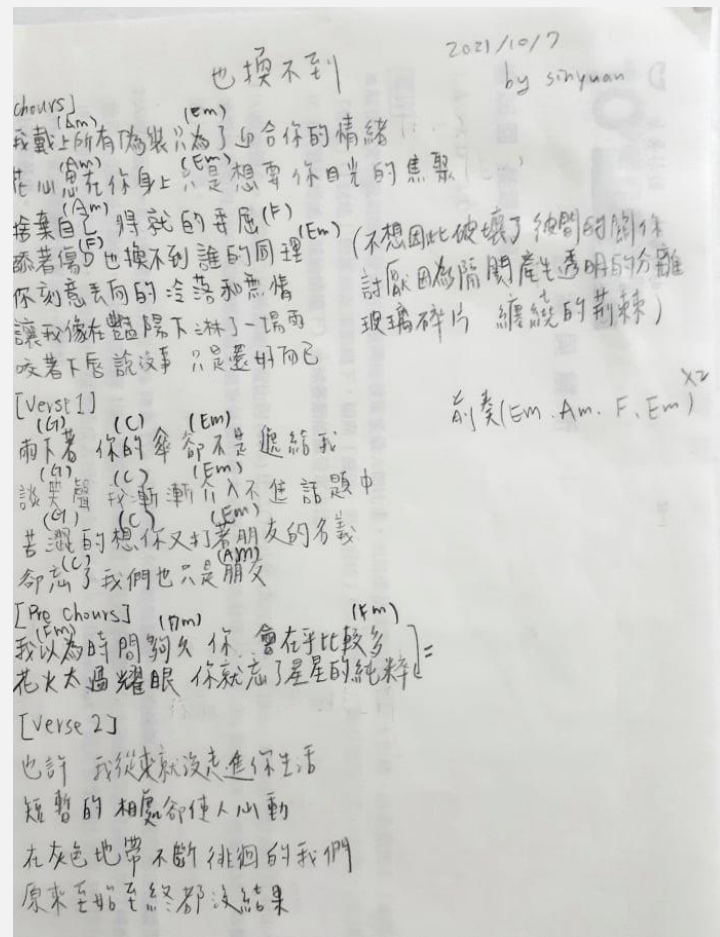 也換不到
2021/10/7
by sinyuan
chours]
(Am) (Em)
我戴上所有偽裝只為了迎合你的情緒
(Am) (Em)
花心思在你身上 只是想要你目光的焦聚
(Am) (F)
捨棄自己 得就的委屈
(F) (Em)
舔著傷口也換不到誰的同理
你刻意丟向的冷落和無情
讓我像在豔陽下淋了一場雨
咬著下唇說沒事 只是還好而已
(不想因此破壞了彼間的關係
討厭因為隔閡產生透明的分離
玻璃碎片 纏繞的荊棘)
前奏(Em.Am.F.Em)x2
[Verse1]
(G) (C) (Em)
雨下著 你的傘卻不是遞給我
(G) (C) (Em)
談笑聲 我漸漸介入不進話題中
(G) (C) (Em)
苦澀的想你又打著朋友的名義
(C) (Am)
卻忘了我們也只是朋友
[Pre Chours]
(Em) (Am) (Em)
我以為時間夠久 你 會在乎比較多
花火太過耀眼 你就忘了星星的純粹]=
[Verse 2]
也許 我從來就沒走進你生活
短暫的相處卻使人心動
在灰色地帶不斷徘徊的我們
原來至始至終都沒結果